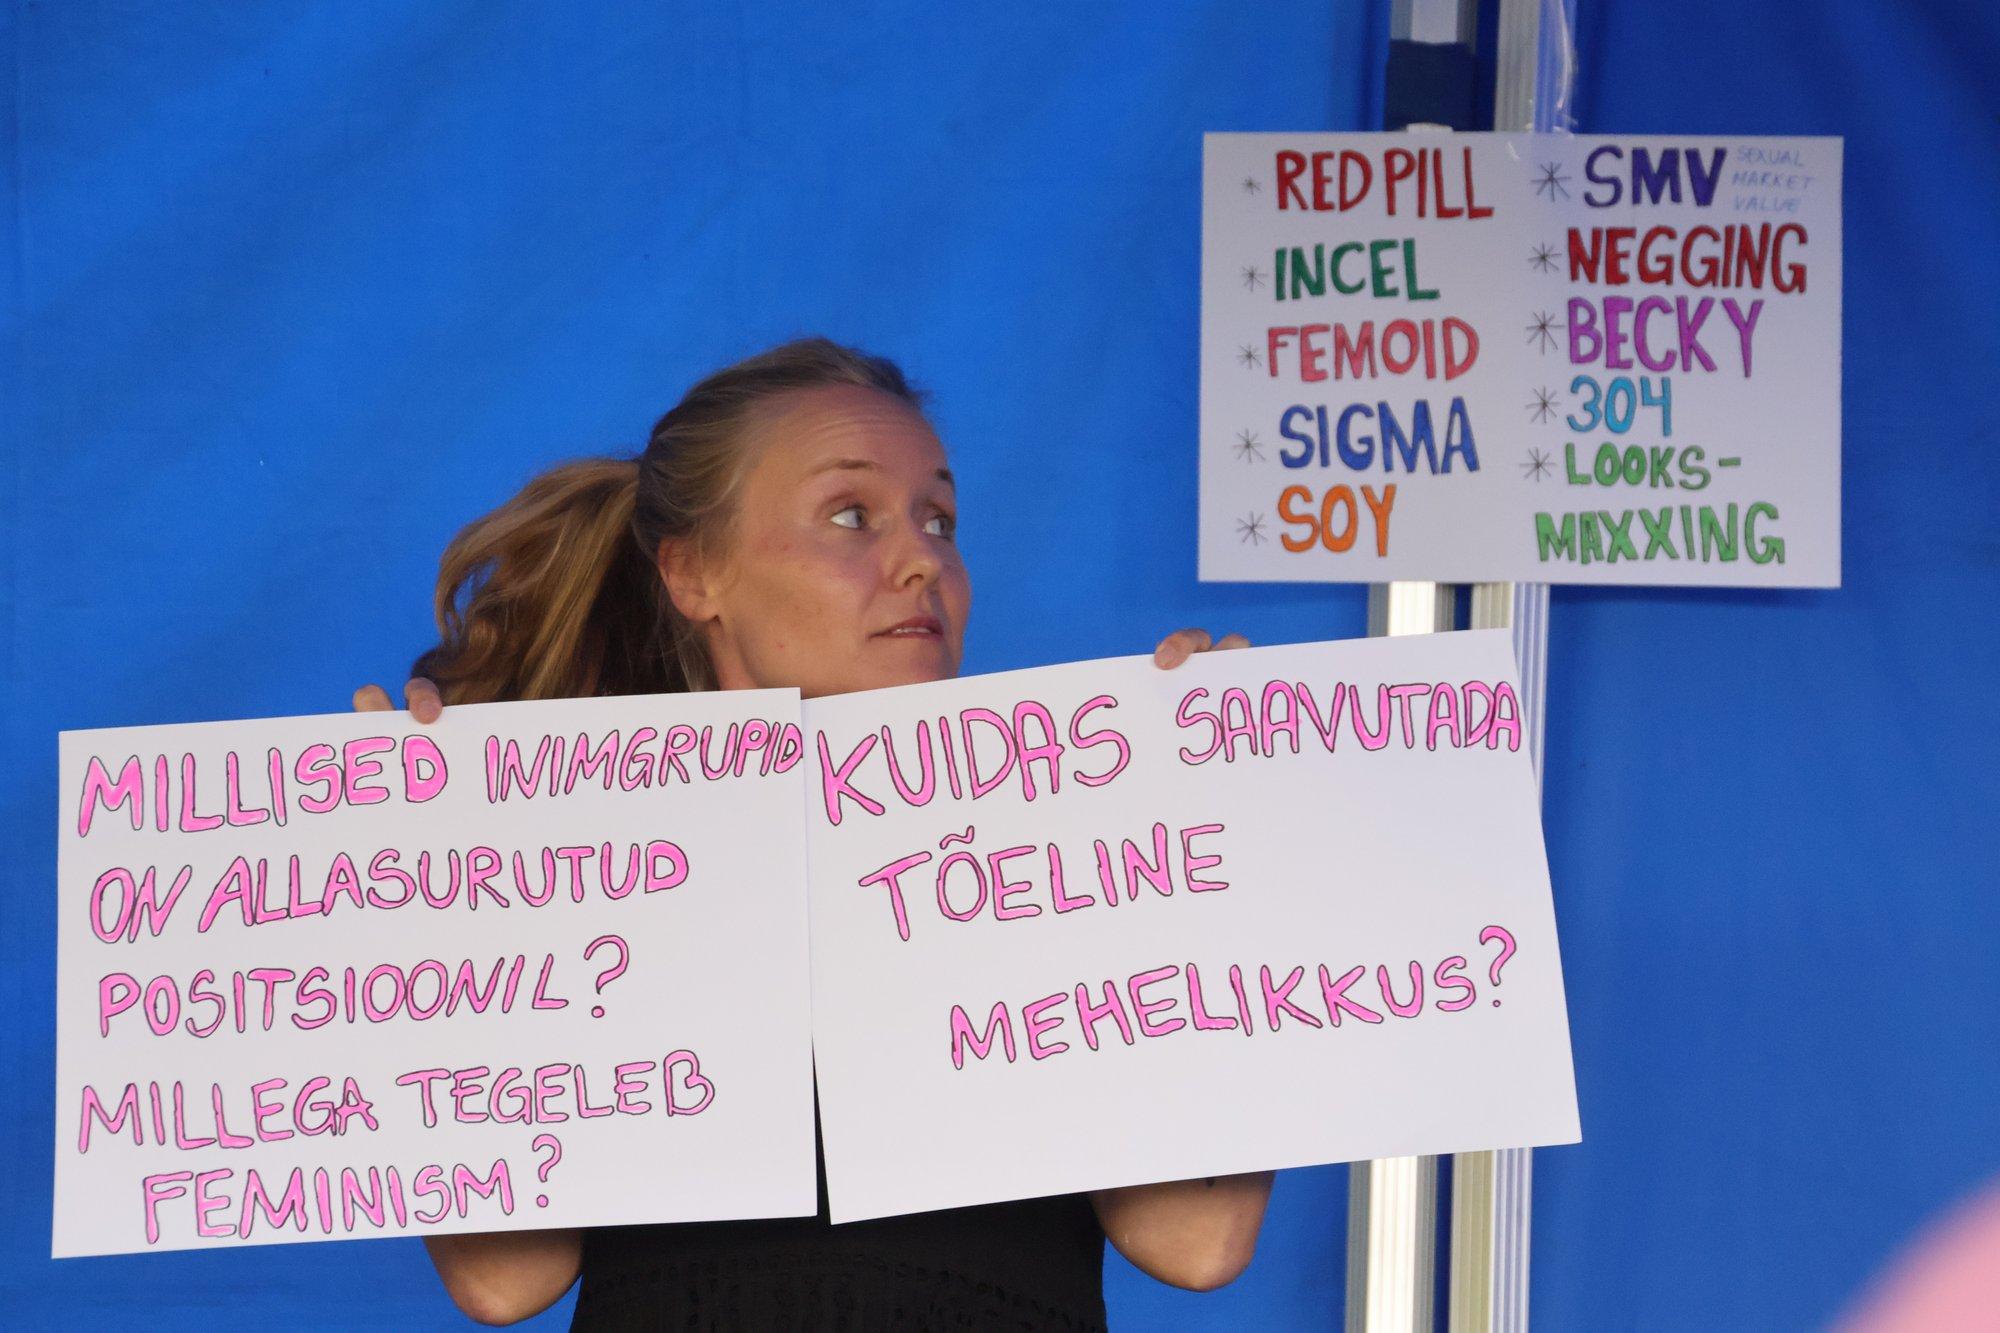 * RED PILL
* INCEL
* FEMOID
* SIGMA
* SOY
* SMV SEXUAL
MARKET
VALUE
* NEGGING
* BECKY
* 304
* LOOKS-
MAXXING
MILLISED INIMGRUPID
ON ALLASURUTUD
POSITSIOONIL?
MILLEGA TEGELEB
FEMINISM?
KUIDAS SAAVUTADA
TÕELINE
MEHELIKKUS?